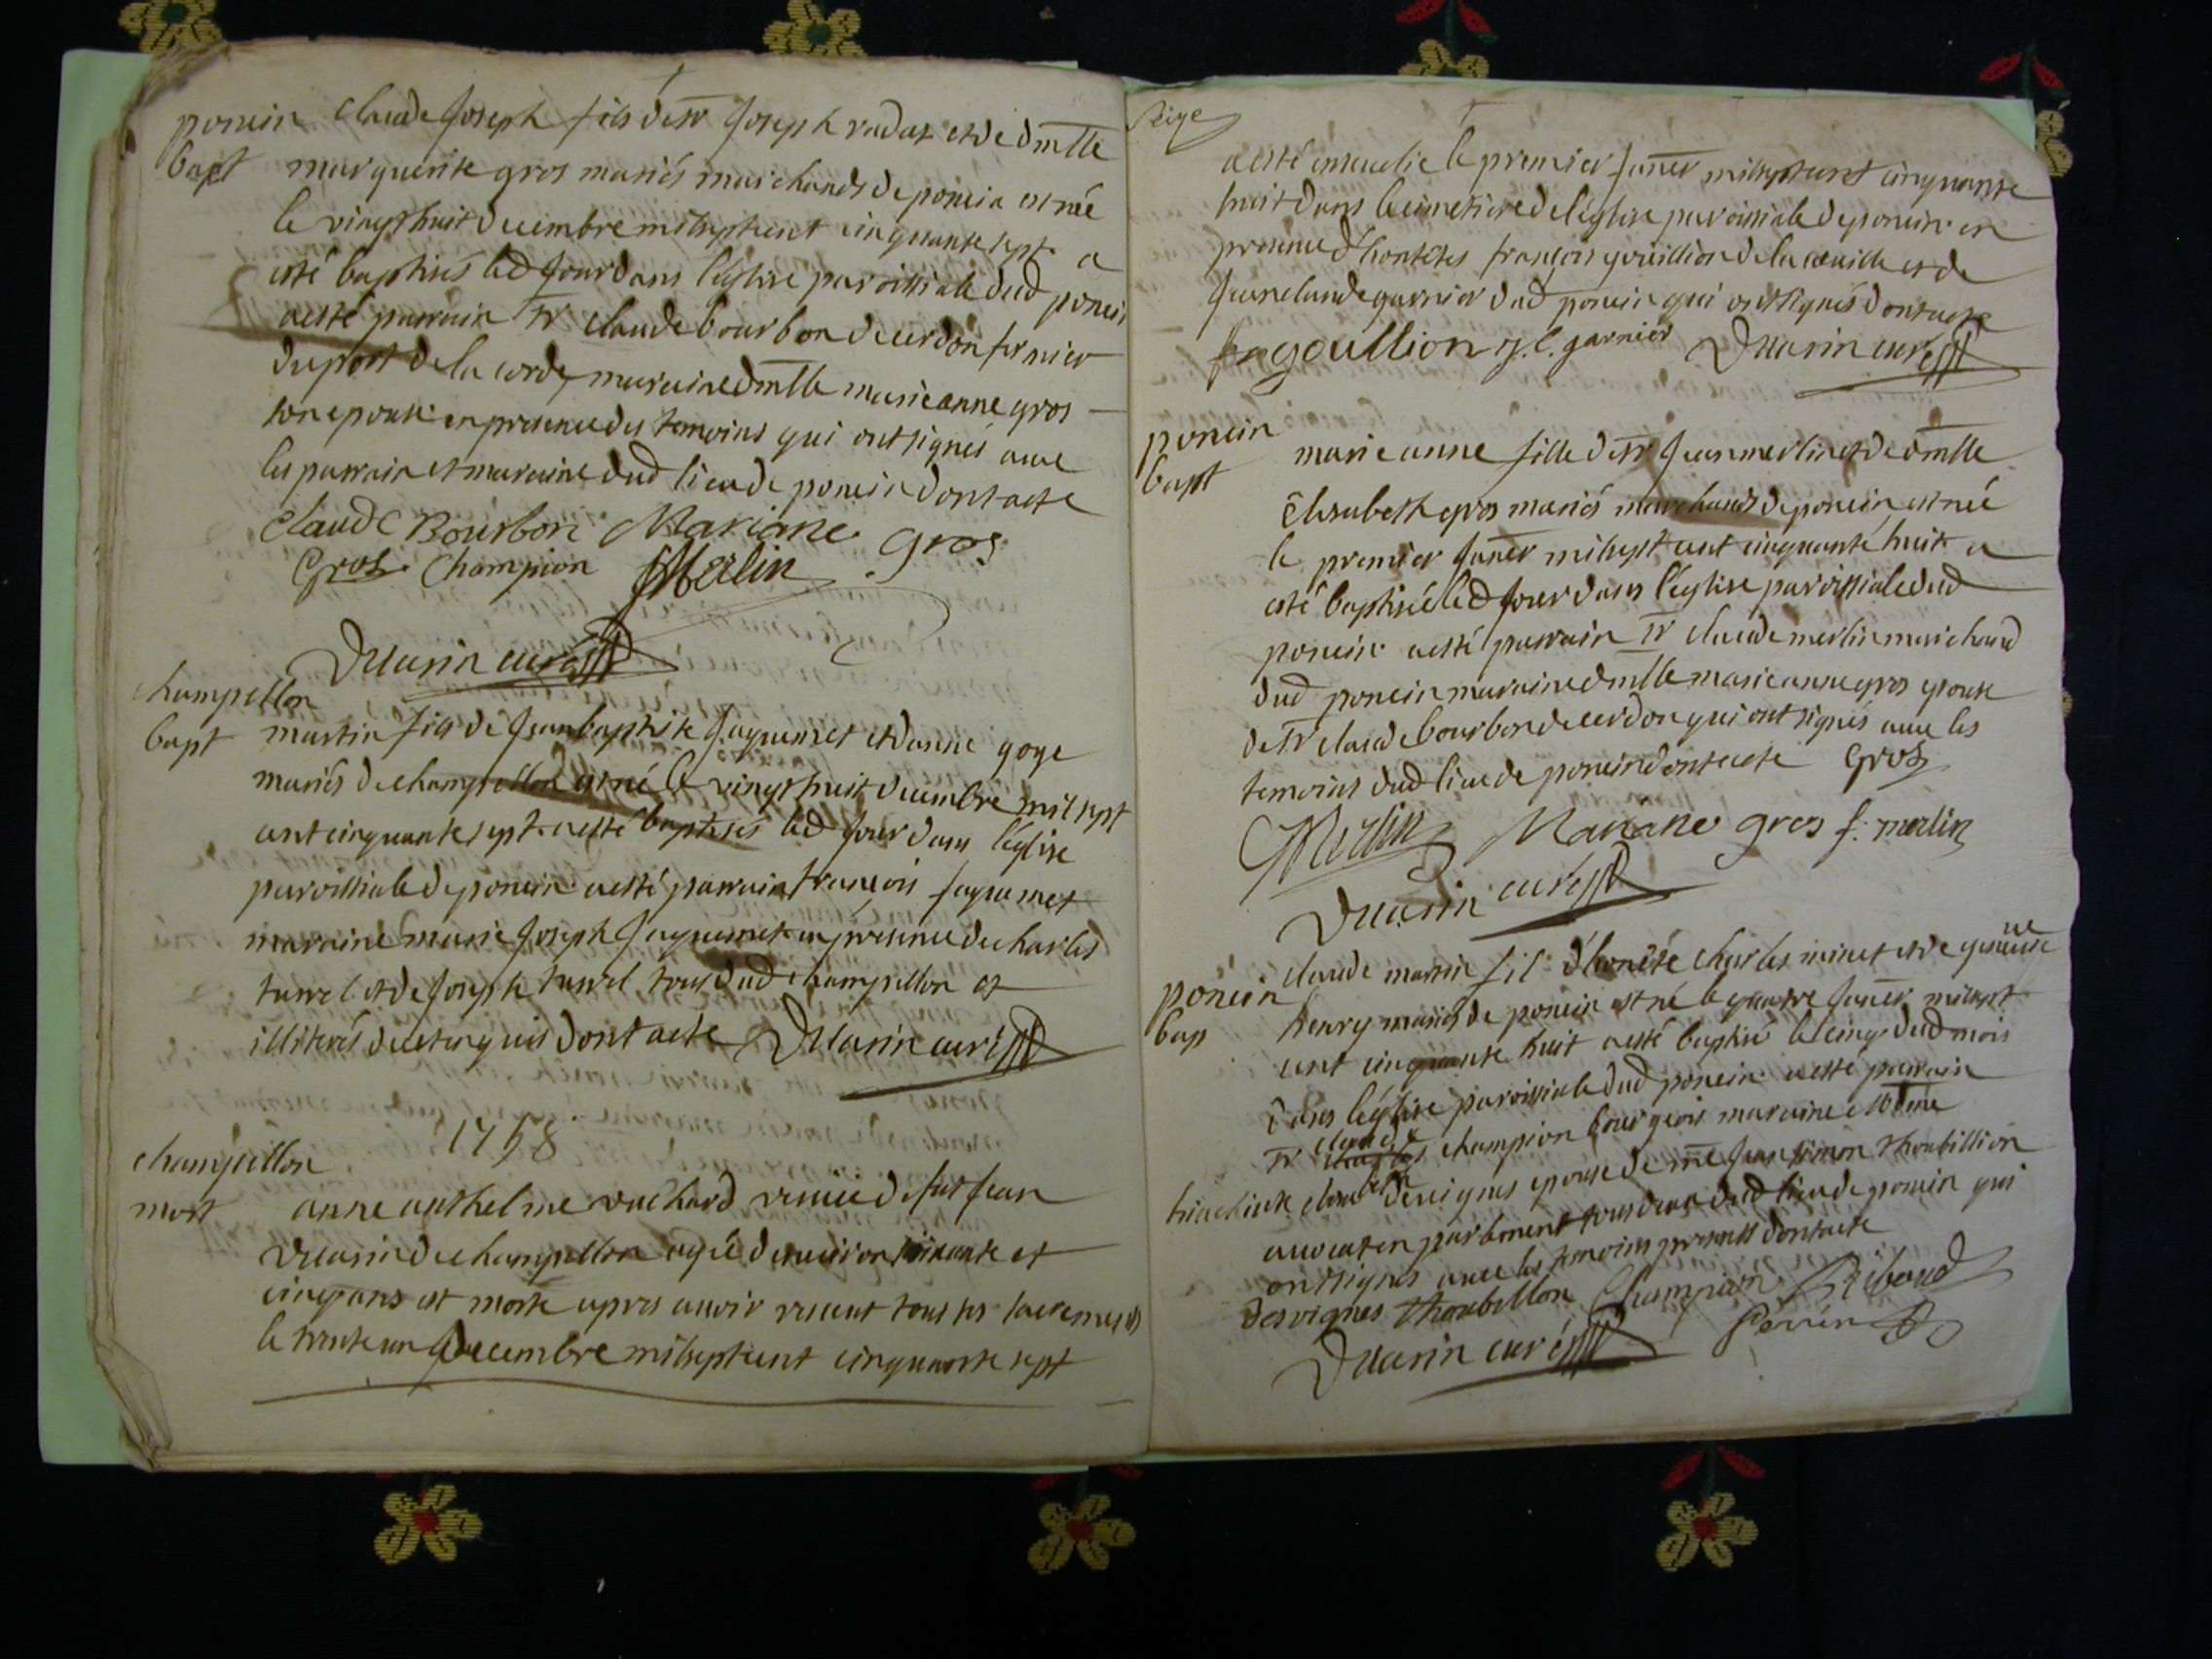 ponein Claude Joseph fils de sr Joseph radax et de dmlle
bapt marguerite gros mariés marchands de ponein est née
le vingt huit decembre mil sept cent cinquante sept a
esté baptisés led jour dans l'église paroissiale dud ponein
a esté parrain sr claude bourbon de cerdon fermier
du port de la corde, maraine dmlle marie anne gros
son epouse en presence des temoins qui ont signés avec
les parrain et maraine dud lieu de ponein dont acte
Claude Bourbon Mariane gros
Gros Champion JMerlin
Duarin curé
champeillon
bapt martin fils de Jean baptiste Jaquemet et d'anne goye
mariés de champeillon est né le vingt huit decembre mil sept
cent cinquante sept a esté baptisés led jour dans l'église
paroissiale de ponein a esté parrain françois Jaquemet
maraine marie Joseph Jaquemet en presence de charles
tavel et de Joseph tavel tous dud champeillon et
illiterés de ce enquis dont acte Duarin curé
1758
champeillon
mort anne anthelme vuchard veuve de fut Jean
Duarin de champeillon agée d'environ soixante et
cinq ans est morte apres avoir receut tous ses sacrements
le trente un decembre mil sept cent cinquante sept
Seize
a esté ensevelie le premier janer mil sept cent cinquante
huit dans le cimetiere de l'église paroissiale de ponein en
presence d'honêtes françois gouillion de la cueille et de
Jean claude garnier dud ponein qui ont signés dont acte
goullion j. C. garnier Duarin curé
ponein
bapt marie anne fille de sr Jean merlin et de dmlle
Elisabeth gros mariés marchands de ponein est née
le premier janer mil sept cent cinquante huit a
esté baptisée led jour dans l'église paroissiale dud
ponein a esté parrain sr claude merlin marchand
dud ponein maraine dmlle marie anne gros epouse
de sr claude bourbon de cerdon qui ont signés avec les
temoins dud lieu de ponein dont acte Gros
CMerlin Mariane gros f. merlin
Duarin curé
ponein claude marin fil d'honête Charles minet et de geneviève
bap henry mariés de ponein est né le quatre janer mil sept
cent cinquante huit a esté baptisé le cinq dud mois
dans l'église paroissiale dud ponein a esté parrain
sr claude champion bourgeois maraine dme
hiacinte claudine desvignes epouse de me Jean simon thoubillion
avocat en parlement tous deux dud lieu de ponein qui
ont signés avec les temoins presents dont acte
desvignes thoubillon Champion Ribaud
Duarin curé Perrin